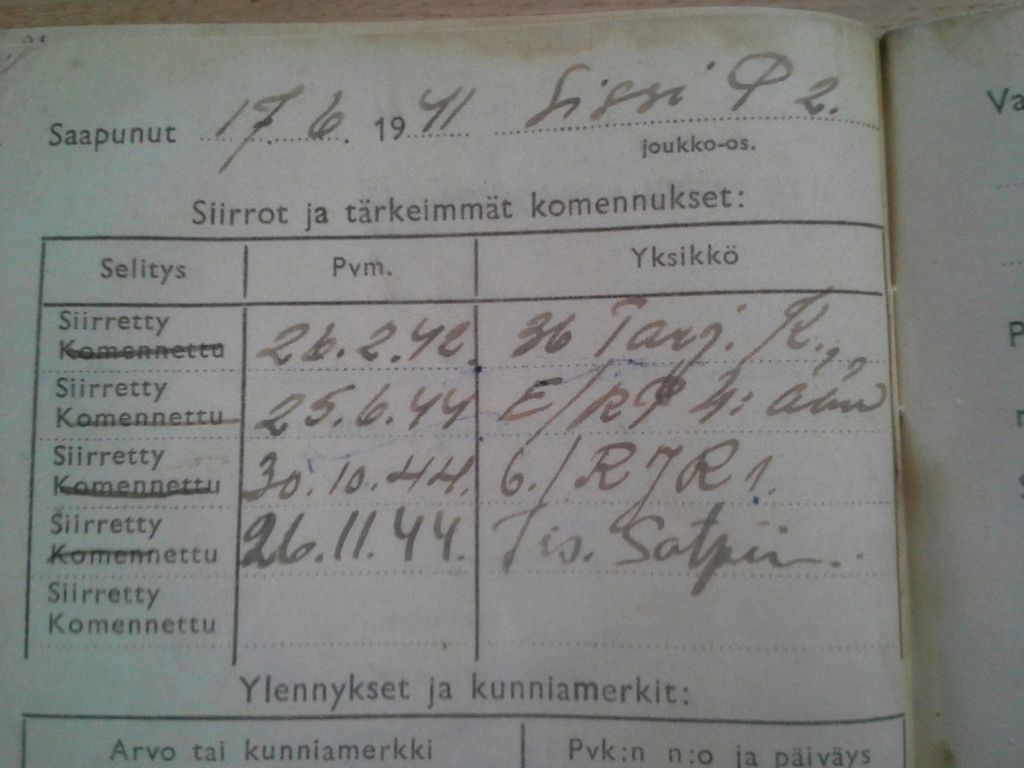 Saapunut 17. 6. 1941 Sissi P 2.
joukko-os.
Siirrot ja tärkeimmät komennukset:
Selitys Pvm. Yksikkö
Siirretty
Komennettu 26.2.42. 36 Tarj. K.,,
Siirretty
Komennettu 25.6.44 E/
Siirretty
Komennettu 30.10.44. 6./RJR 1.
Siirretty
Komennettu 26.11.44. Tis.
Siirretty
Komennettu
Ylennykset ja kunniamerkit:
Arvo tai kunniamerkki Pvk:n n:o ja päiväys
Va
P